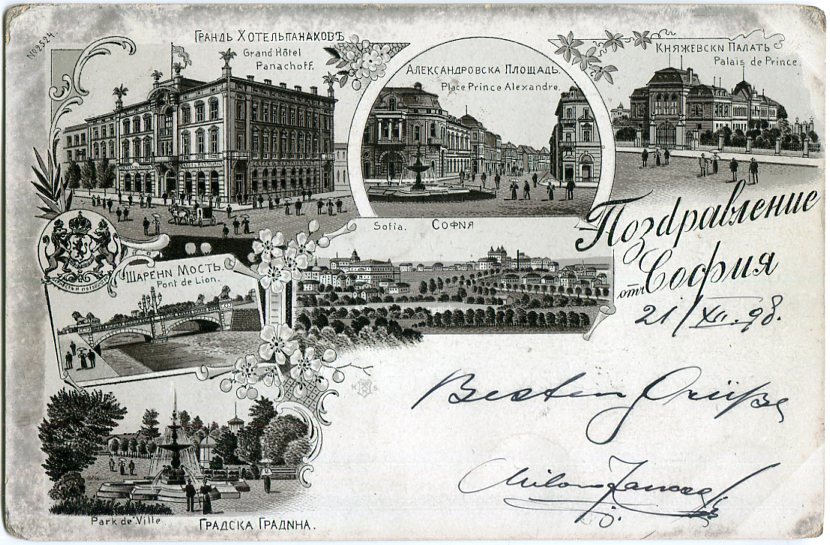 No 2524.
ГРАНДЬ ХОТЕЛЬПАНАХОВЪ
Grand Hôtel
Panachoff.
АЛЕКСАНДРОВСКА ПЛОЩАДЬ.
Place Prince Alexandre.
КНЯЖЕВСКИ ПАЛАТЬ
Palais de Prince.
Sofia. СОФИЯ
Поздравление
отъ София
21/XII.98.
ШАРЕНИ МОСТЬ.
Pont de Lion.
Besten Grüße
Milan
Park de Ville ГРАДСКА ГРАДИНА.